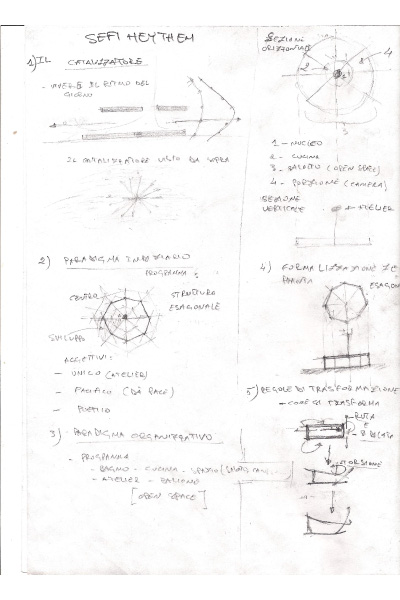 SEFI HEYTHEM
1) IL CATALIZZATORE
- VIVERE IL RITMO DEL
GIORNO
IL CATALIZZATORE VISTO DA SOPRA
2) PARADIGMA INDIZIARIO
PROGRAMMA
CENTRO
STRUTTURA
ESAGONALE
SVILUPPO
AGGETTIVI:
- UNICO (ATELIER)
- PACIFICO (DÀ PACE)
3) PARADIGMA ORGANIZZATIVO
- PROGRAMMA
- BAGNO - CUCINA - SPAZIO
- ATELIER -
[OPEN SPACE]
SEZIONI
ORIZZONTALI
2
4
3
1 - NUCLEO
2 - CUCINA
3 - SALOTTO (OPEN SPACE)
4 - PORZIONE (CAMERA)
SEZIONE
VERTICALE
ATELIER
4) FORMALIZZAZIONE
PIANTA
ESAGON
5) REGOLE DI TRASFORMAZIONE
- COME SI TRASFORMA
RUOTA
E
TORSIONE